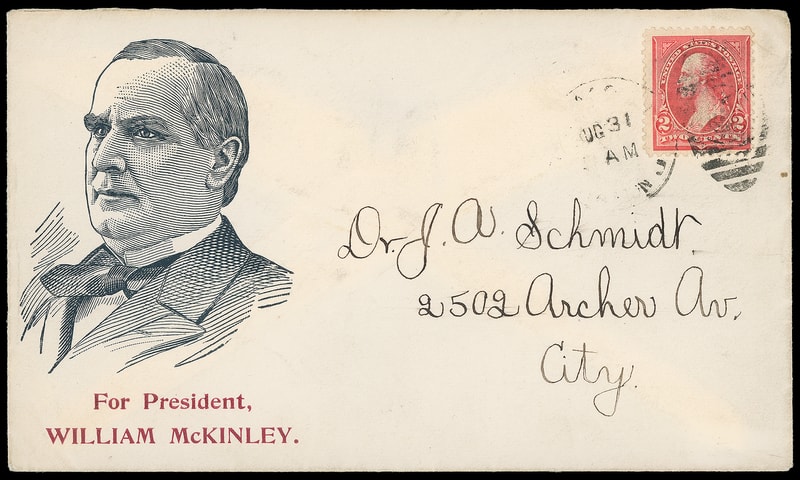 UNITED STATES POSTAGE
2 2
UG 31
AM
Dr. J. A. Schmidt.
2502 Archer Av.
City.
For President,
WILLIAM McKINLEY.